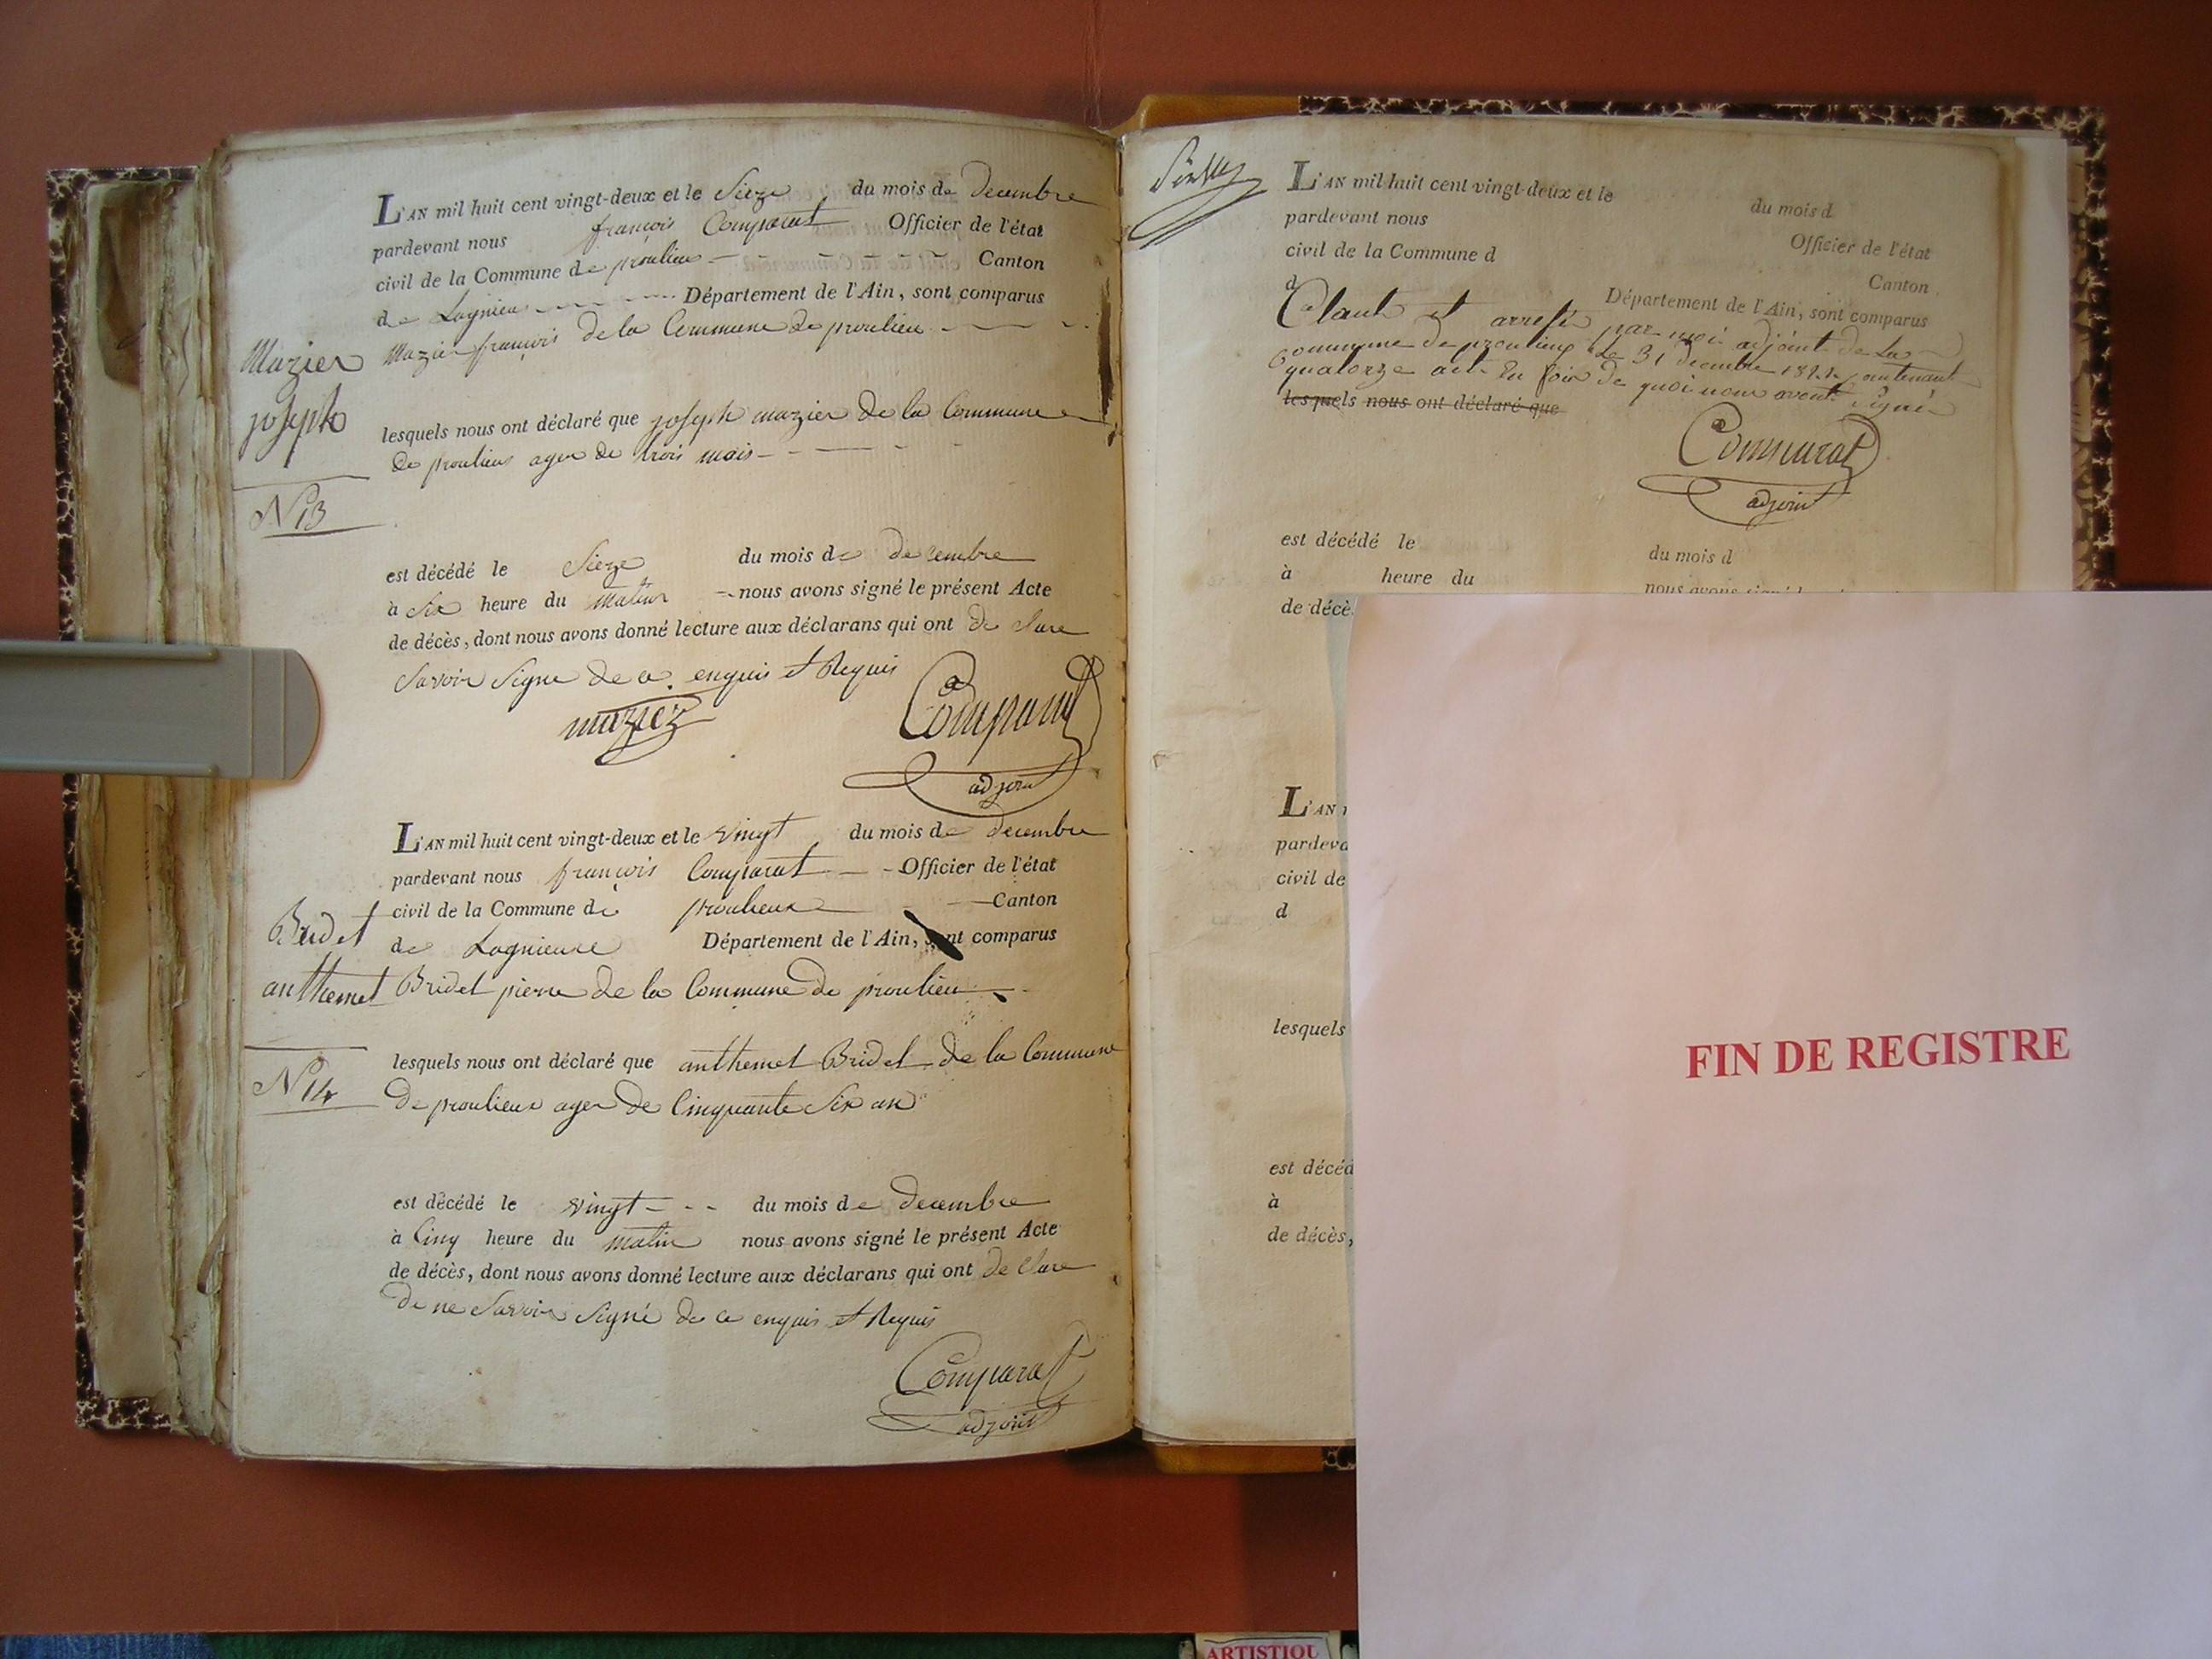 L'AN mil huit cent vingt-deux et le Sieze du mois de decembre
pardevant nous françois Comparat Officier de l'état
civil de la Commune de proulieu Canton
de Lagnieu Département de l'Ain, sont comparus
Mazier françois de la Commune de proulieu
Mazier
joseph
lesquels nous ont déclaré que joseph mazier de la Commune
de proulieu ager de trois mois
N 13
est décédé le Sieze du mois de decembre
à Six heure du matin nous avons signé le présent Acte
de décès, dont nous avons donné lecture aux déclarans qui ont de clare
Savoir Signe de ce enquis et Requis
mazier
Comparat
adjoint
L'AN mil huit cent vingt-deux et le vingt du mois de decembre
pardevant nous françois Comparat Officier de l'état
civil de la Commune de proulieux Canton
de Lagnieux Département de l'Ain, sont comparus
Bridet
anthemet
Bridet pierre de la Commune de proulieu
lesquels nous ont déclaré que anthemet Bridet de la Commune
N 14
de proulieux ager de Cinquante Six an
est décédé le vingt du mois de decembre
à Cinq heure du matin nous avons signé le présent Acte
de décès, dont nous avons donné lecture aux déclarans qui ont de clare
de ne Savoir Signé de ce enquis et Requis
Comparat
adjoint
L'AN mil huit cent vingt-deux et le du mois d
pardevant nous Officier de l'état
civil de la Commune d Canton
d Département de l'Ain, sont comparus
Claut et arresté par moi adjoint de La
Commune de proulieux Le 31 decembre 1822 Contenant
quatorze acte En foi de quoi nous avont Signé
lesquels nous ont déclaré que
Comparat
adjoint
est décédé le du mois d
à heure du nous avons signé l
de décè
L'AN
pardeva
civil de
d
lesquels
est décéd
à
de décès,
FIN DE REGISTRE
ARTISTIQU